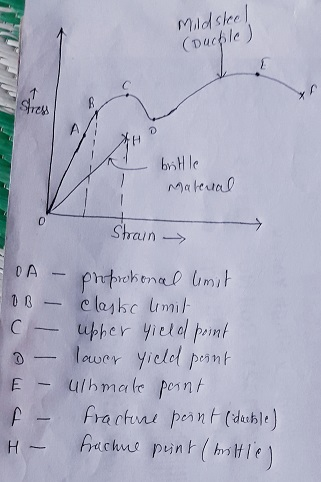 Mild steel
(Ductile)
E
F
C
B
Stress
D
A
H
brittle
material
O
Strain →
OA — proportional limit
OB — elastic limit
C — upper yield point
D — lower yield point
E — ultimate point
F — fracture point (ductile)
H — fracture point (brittle)